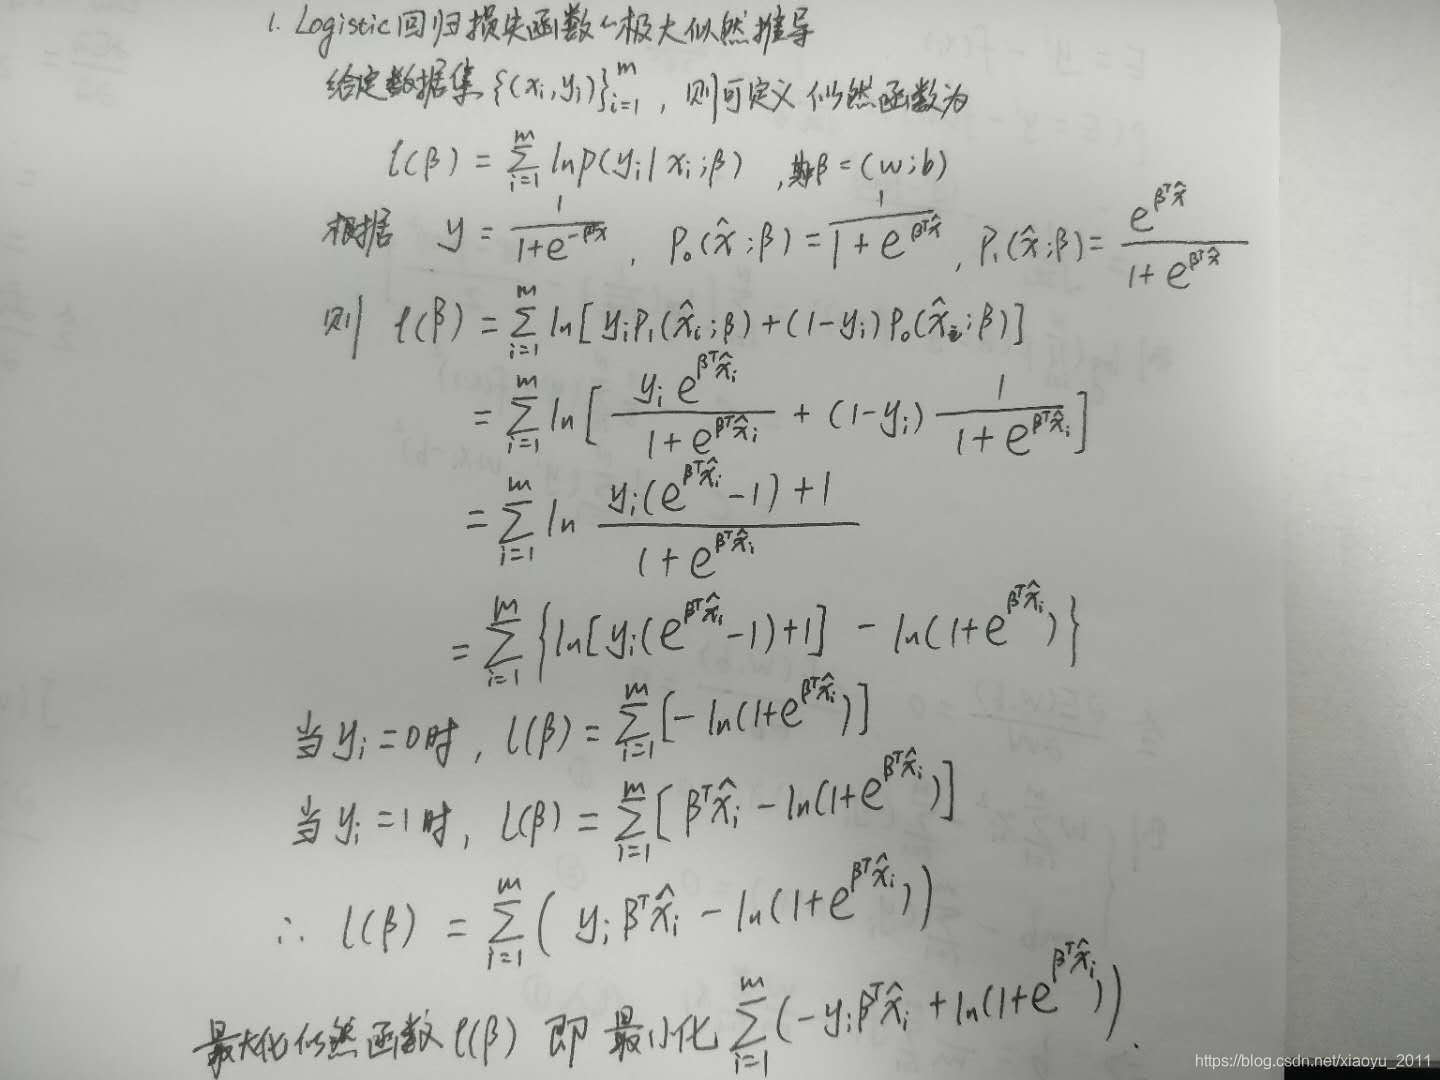 1. Logistic回归损失函数~极大似然推导
给定数据集 {(xᵢ,yᵢ)}ᵢ₌₁ᵐ , 则可定义似然函数为
l(β) = ∑ᵢ₌₁ᵐ ln p(yᵢ|xᵢ;β) , 其β=(w;b)
根据 y = 1/(1+e^(-βx)) , P₀(x̂;β) = 1/(1+e^(βᵀx̂)) , P₁(x̂;β) = e^(βᵀx̂)/(1+e^(βᵀx̂))
则 l(β) = ∑ᵢ₌₁ᵐ ln[yᵢP₁(x̂ᵢ;β)+(1-yᵢ)P₀(x̂ᵢ;β)]
= ∑ᵢ₌₁ᵐ ln[ yᵢe^(βᵀx̂ᵢ)/(1+e^(βᵀx̂ᵢ)) + (1-yᵢ) 1/(1+e^(βᵀx̂ᵢ)) ]
= ∑ᵢ₌₁ᵐ ln (yᵢ(e^(βᵀx̂ᵢ)-1)+1)/(1+e^(βᵀx̂ᵢ))
= ∑ᵢ₌₁ᵐ {ln[yᵢ(e^(βᵀx̂ᵢ)-1)+1] - ln(1+e^(βᵀx̂ᵢ))}
当 yᵢ=0时, l(β) = ∑ᵢ₌₁ᵐ [-ln(1+e^(βᵀx̂ᵢ))]
当 yᵢ=1时, l(β) = ∑ᵢ₌₁ᵐ [βᵀx̂ᵢ - ln(1+e^(βᵀx̂ᵢ))]
∴ l(β) = ∑ᵢ₌₁ᵐ (yᵢβᵀx̂ᵢ - ln(1+e^(βᵀx̂ᵢ)))
最大化似然函数l(β) 即 最小化 ∑ᵢ₌₁ᵐ (-yᵢβᵀx̂ᵢ + ln(1+e^(βᵀx̂ᵢ))).
https://blog.csdn.net/xiaoyu_2011